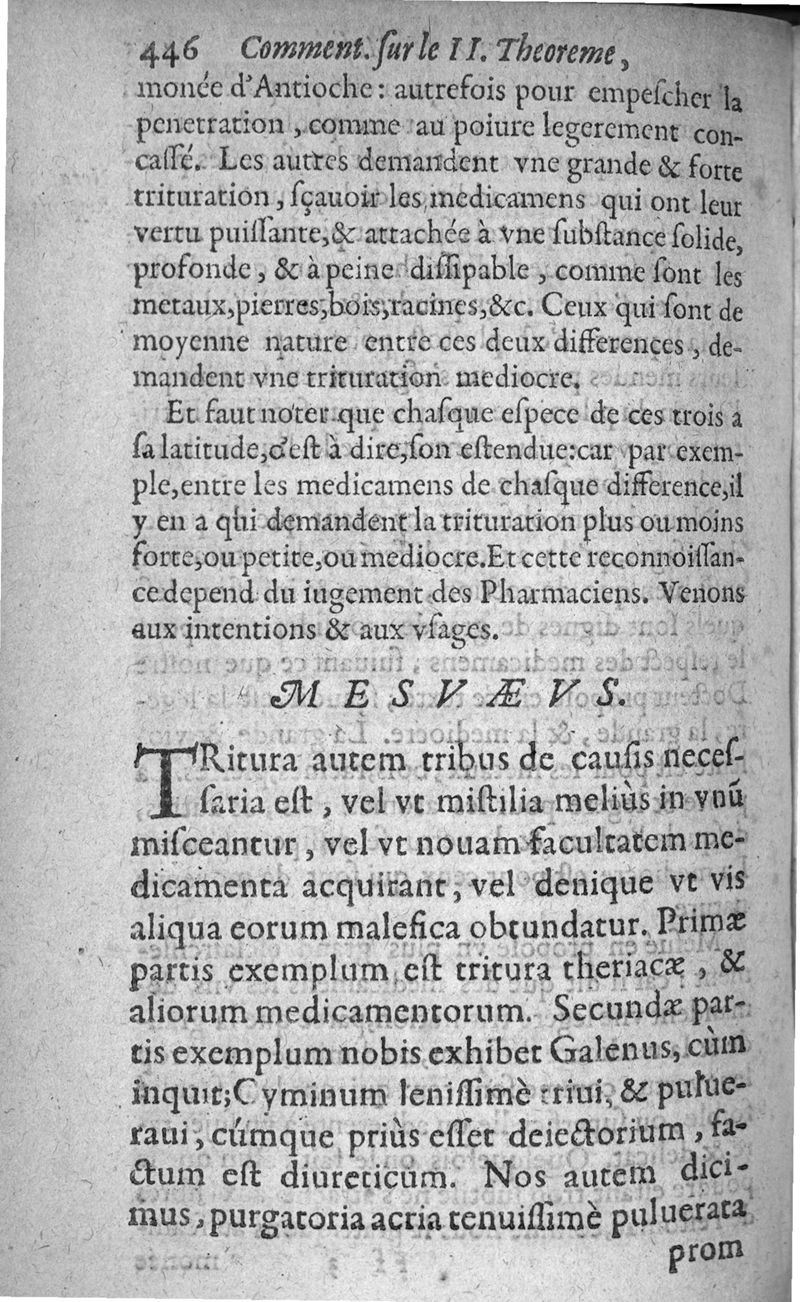 446 Comment. ſur le II. Theoreme,
monée d'Antioche: autrefois pour empeſcher la
penetration, comme au poiure legerement con-
caſſé. Les autres demandent vne grande & forte
trituration, ſçauoir les medicamens qui ont leur
vertu puiſſante, & attachée à vne ſubſtance ſolide,
profonde, & à peine diſſipable, comme ſont les
metaux, pierres, bois, racines, &c. Ceux qui ſont de
moyenne nature entre ces deux differences, de-
mandent vne trituration mediocre.
Et faut noter que chaſque eſpece de ces trois a
ſa latitude, c'eſt à dire, ſon eſtendue: car par exem-
ple, entre les medicamens de chaſque difference, il
y en a qui demandent la trituration plus ou moins
forte, ou petite, ou mediocre. Et cette reconnoiſſan-
ce depend du iugement des Pharmaciens. Venons
aux intentions & aux vſages.
MESVÆVS.
TRitura autem tribus de cauſis neceſ-
ſaria eſt, vel vt miſtilia meliùs in vnũ
miſceantur, vel vt nouam facultatem me-
dicamenta acquirant, vel denique vt vis
aliqua eorum malefica obtundatur. Primæ
partis exemplum eſt tritura theriacæ, &
aliorum medicamentorum. Secundæ par-
tis exemplum nobis exhibet Galenus, cùm
inquit; Cyminum leniſſimè triui, & pulue-
raui, cúmque priùs eſſet deiectorium, fa-
ctum eſt diureticum. Nos autem dici-
mus, purgatoria acria tenuiſſimè puluerata
prom